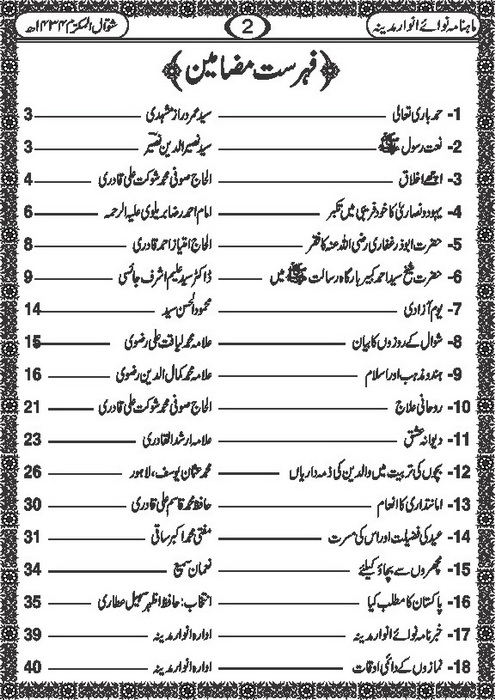 ماہنامہ نوائے انوار مدینہ 2 شوال المکرم ۱۴۳۴ھ
فہرست مضامین
1- حمد باری تعالی سید محروز از مشہدی 3
2- نعت رسول ﷺ سید نصیر الدین نصیر 3
3- اچھے اخلاق الحاج صوفی محمد شوکت علی قادری 4
4- یہود و نصاریٰ کا خود فریبی میں تکبر امام احمد رضا بریلوی علیہ الرحمہ 6
5- حضرت ابوذر غفاری رضی اللہ عنہ کا فقر الحاج امتیاز احمد قادری 8
6- حضرت شیخ سید احمد کبیر بارگاہ رسالت ﷺ میں ڈاکٹر سید علیم اشرف جائسی 9
7- یوم آزادی محمود الحسن سید 14
8- شوال کے روزوں کا بیان علامہ محمد لیاقت علی رضوی 15
9- ہندو مذہب اور اسلام علامہ محمد کمال الدین رضوی 16
10- روحانی علاج الحاج صوفی محمد شوکت علی قادری 21
11- دیوانہ عشق علامہ ارشد القادری 23
12- بچوں کی تربیت میں والدین کی ذمہ داریاں محمد عثمان یوسف، لاہور 26
13- امانتداری کا انعام حافظ محمد قاسم علی قادری 30
14- عید کی فضیلت اور اس کی مسرت مفتی محمد اکبر ساقی 31
15- مچھروں سے بچاؤ کیلئے نعمان سمیع 34
16- پاکستان کا مطلب کیا انتخاب: حافظ اظہر سہیل عطاری 35
17- خبرنامہ نوائے انوار مدینہ ادارہ انوار مدینہ 39
18- نمازوں کے دائمی اوقات ادارہ انوار مدینہ 40